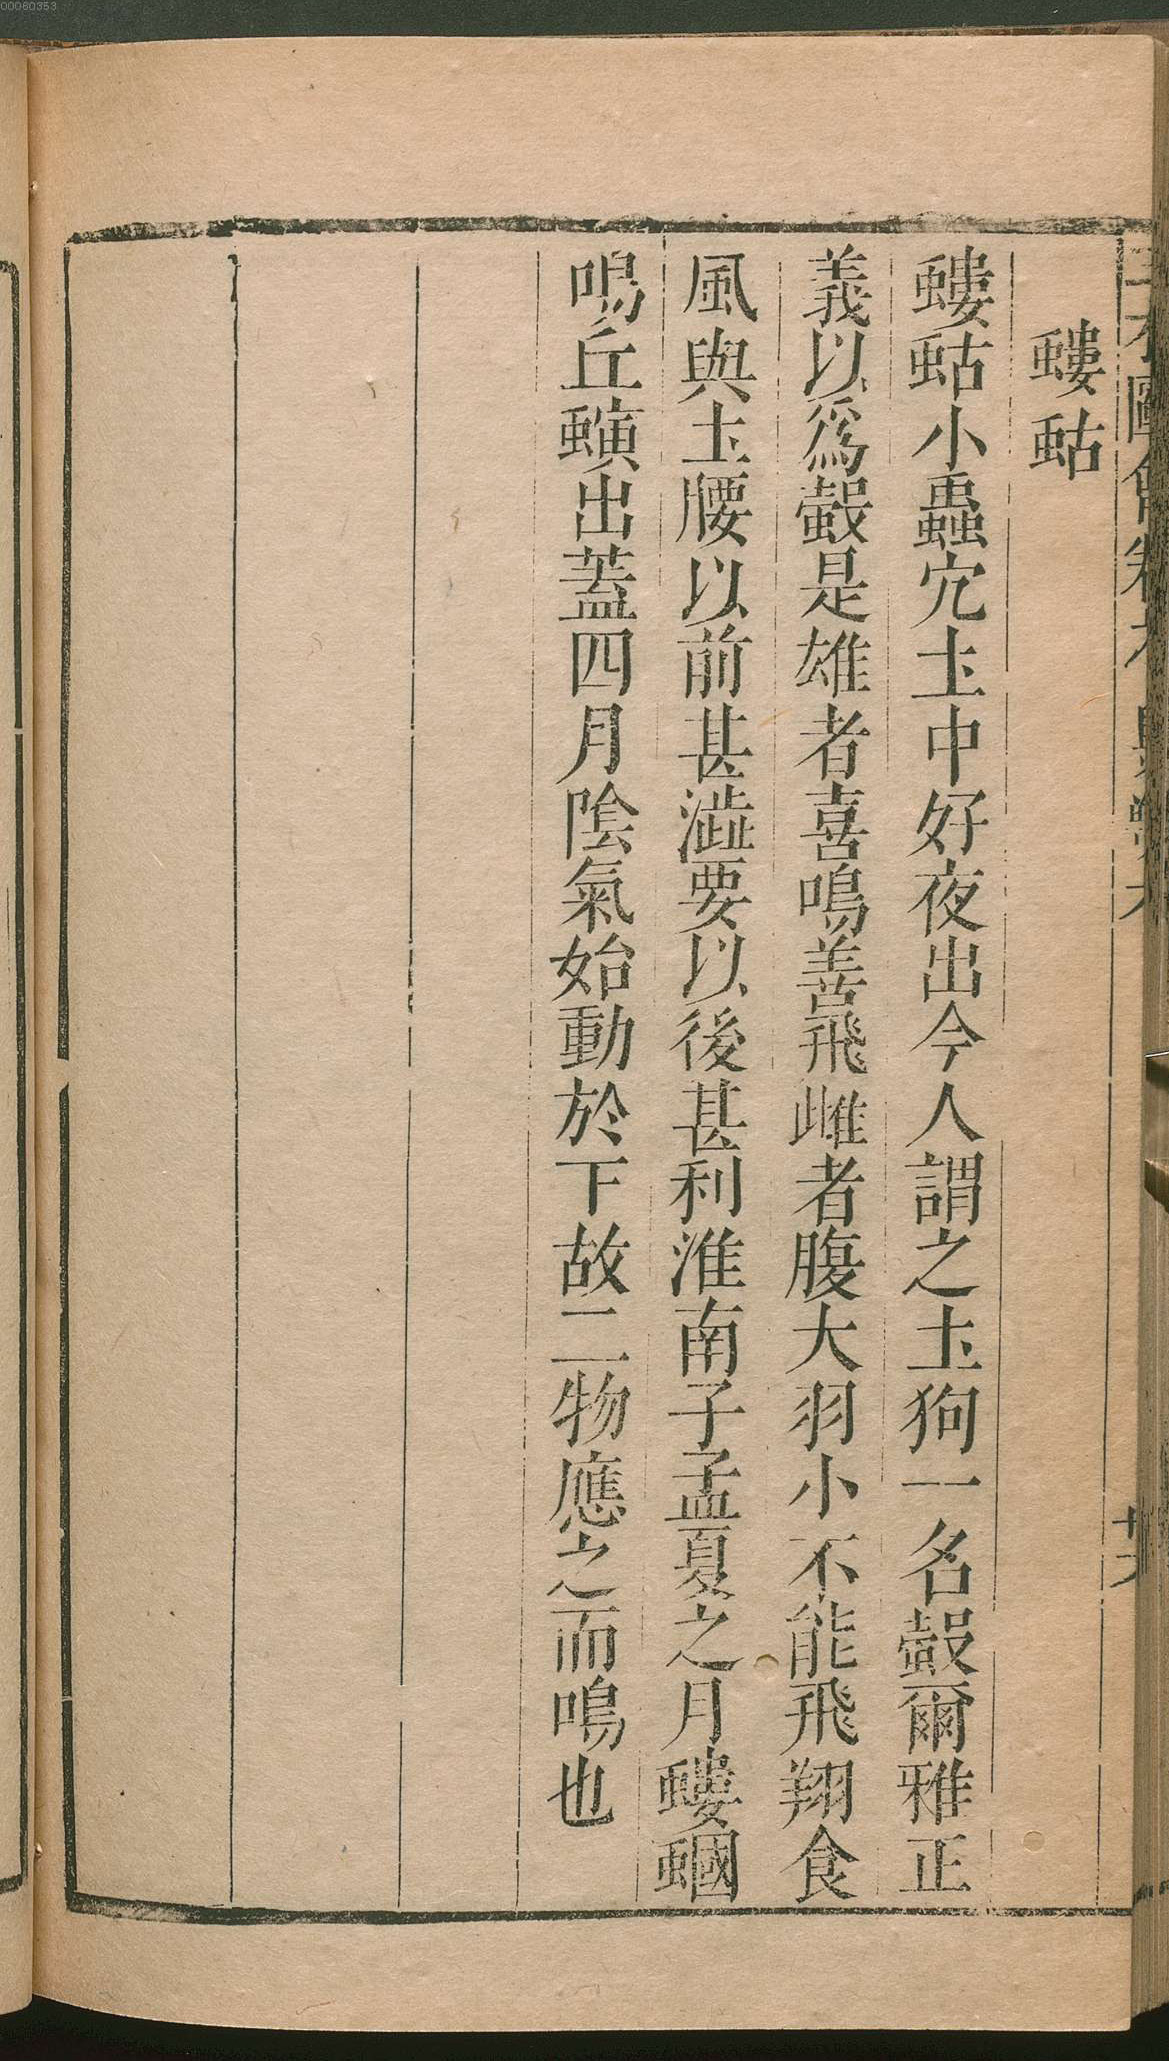 00060353
螻蛄
螻蛄小蟲穴土中好夜出今人謂之土狗一名螜爾雅正
義以爲螜是雄者喜鳴善飛雌者腹大羽小不能飛翔食
風與土腰以前甚澁要以後甚利淮南子孟夏之月螻蟈
鳴丘螾出蓋四月陰氣始動於下故二物應之而鳴也